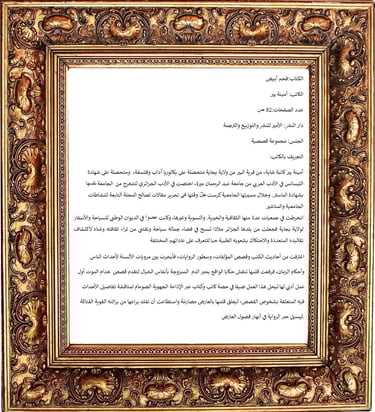 الكتاب: فحم أبيض
الكاتب: أمينة بير
عدد الصفحات: 82 ص
دار النشر: الأمير للنشر والتوزيع والترجمة
الجنس: مجموعة قصصية
التعريف بالكاتب:
أمينة بير كاتبة شابة، من قرية البير من ولاية بجاية متحصلة على بكالوريا آداب وفلسفة، ومتحصلة على شهادة
الليسانس في الأدب العربي من جامعة عبد الرحمان ميرة، اختصت في الأدب الجزائري لتتخرج من الجامعة نفسها
بشهادة الماستر. وخلال مسيرتها الجامعية كرست جلّ وقتها في تحرير مقالات لصالح المجلة التابعة لنشاطات
الجامعية والمناشير
انخرطت في جمعيات عدة منها الثقافية والخيرية، والنسوية وغيرها، وكانت عضوا في الديوان الوطني للسياحة والأسفار
لولاية بجاية فجعلت من بلدها الجزائر ملاذا تسبح في فضاء جماله سياحة وتغني من ثراء ثقافته وعادة لاكتشاف
تقاليده المتعددة والاحتكاك بشعوبه الطيبة حبا للتعرف على عاداتهم المختلفة
اغترفت من أحاديث الكتب وقصص المؤلفات، وسطور الروايات، فأبحرت بين مرويات الألسنة لأحداث الناس
وأحكام الزمان، فرفعت قلمها تنقش حكايا الواقع بحبر الدم الممزوجة بأنفاس الخيال لتقدم قصص خدام الموت أول
عمل أدبي لها ليحل هذا العمل ضيفا في حصة كاتب وكتاب عبر الإذاعة الجهوية الصومام لمناقشة تفاصيل الأحداث
فيه المتعلقة بشخوص القصص؛ ليعلق قلمها بالعارض مصارعة واستطاعت أن تفتك يراعها من براثنه القوية الفتاكة
ليسيل حبر الرواية في أنهار فصول العارض.